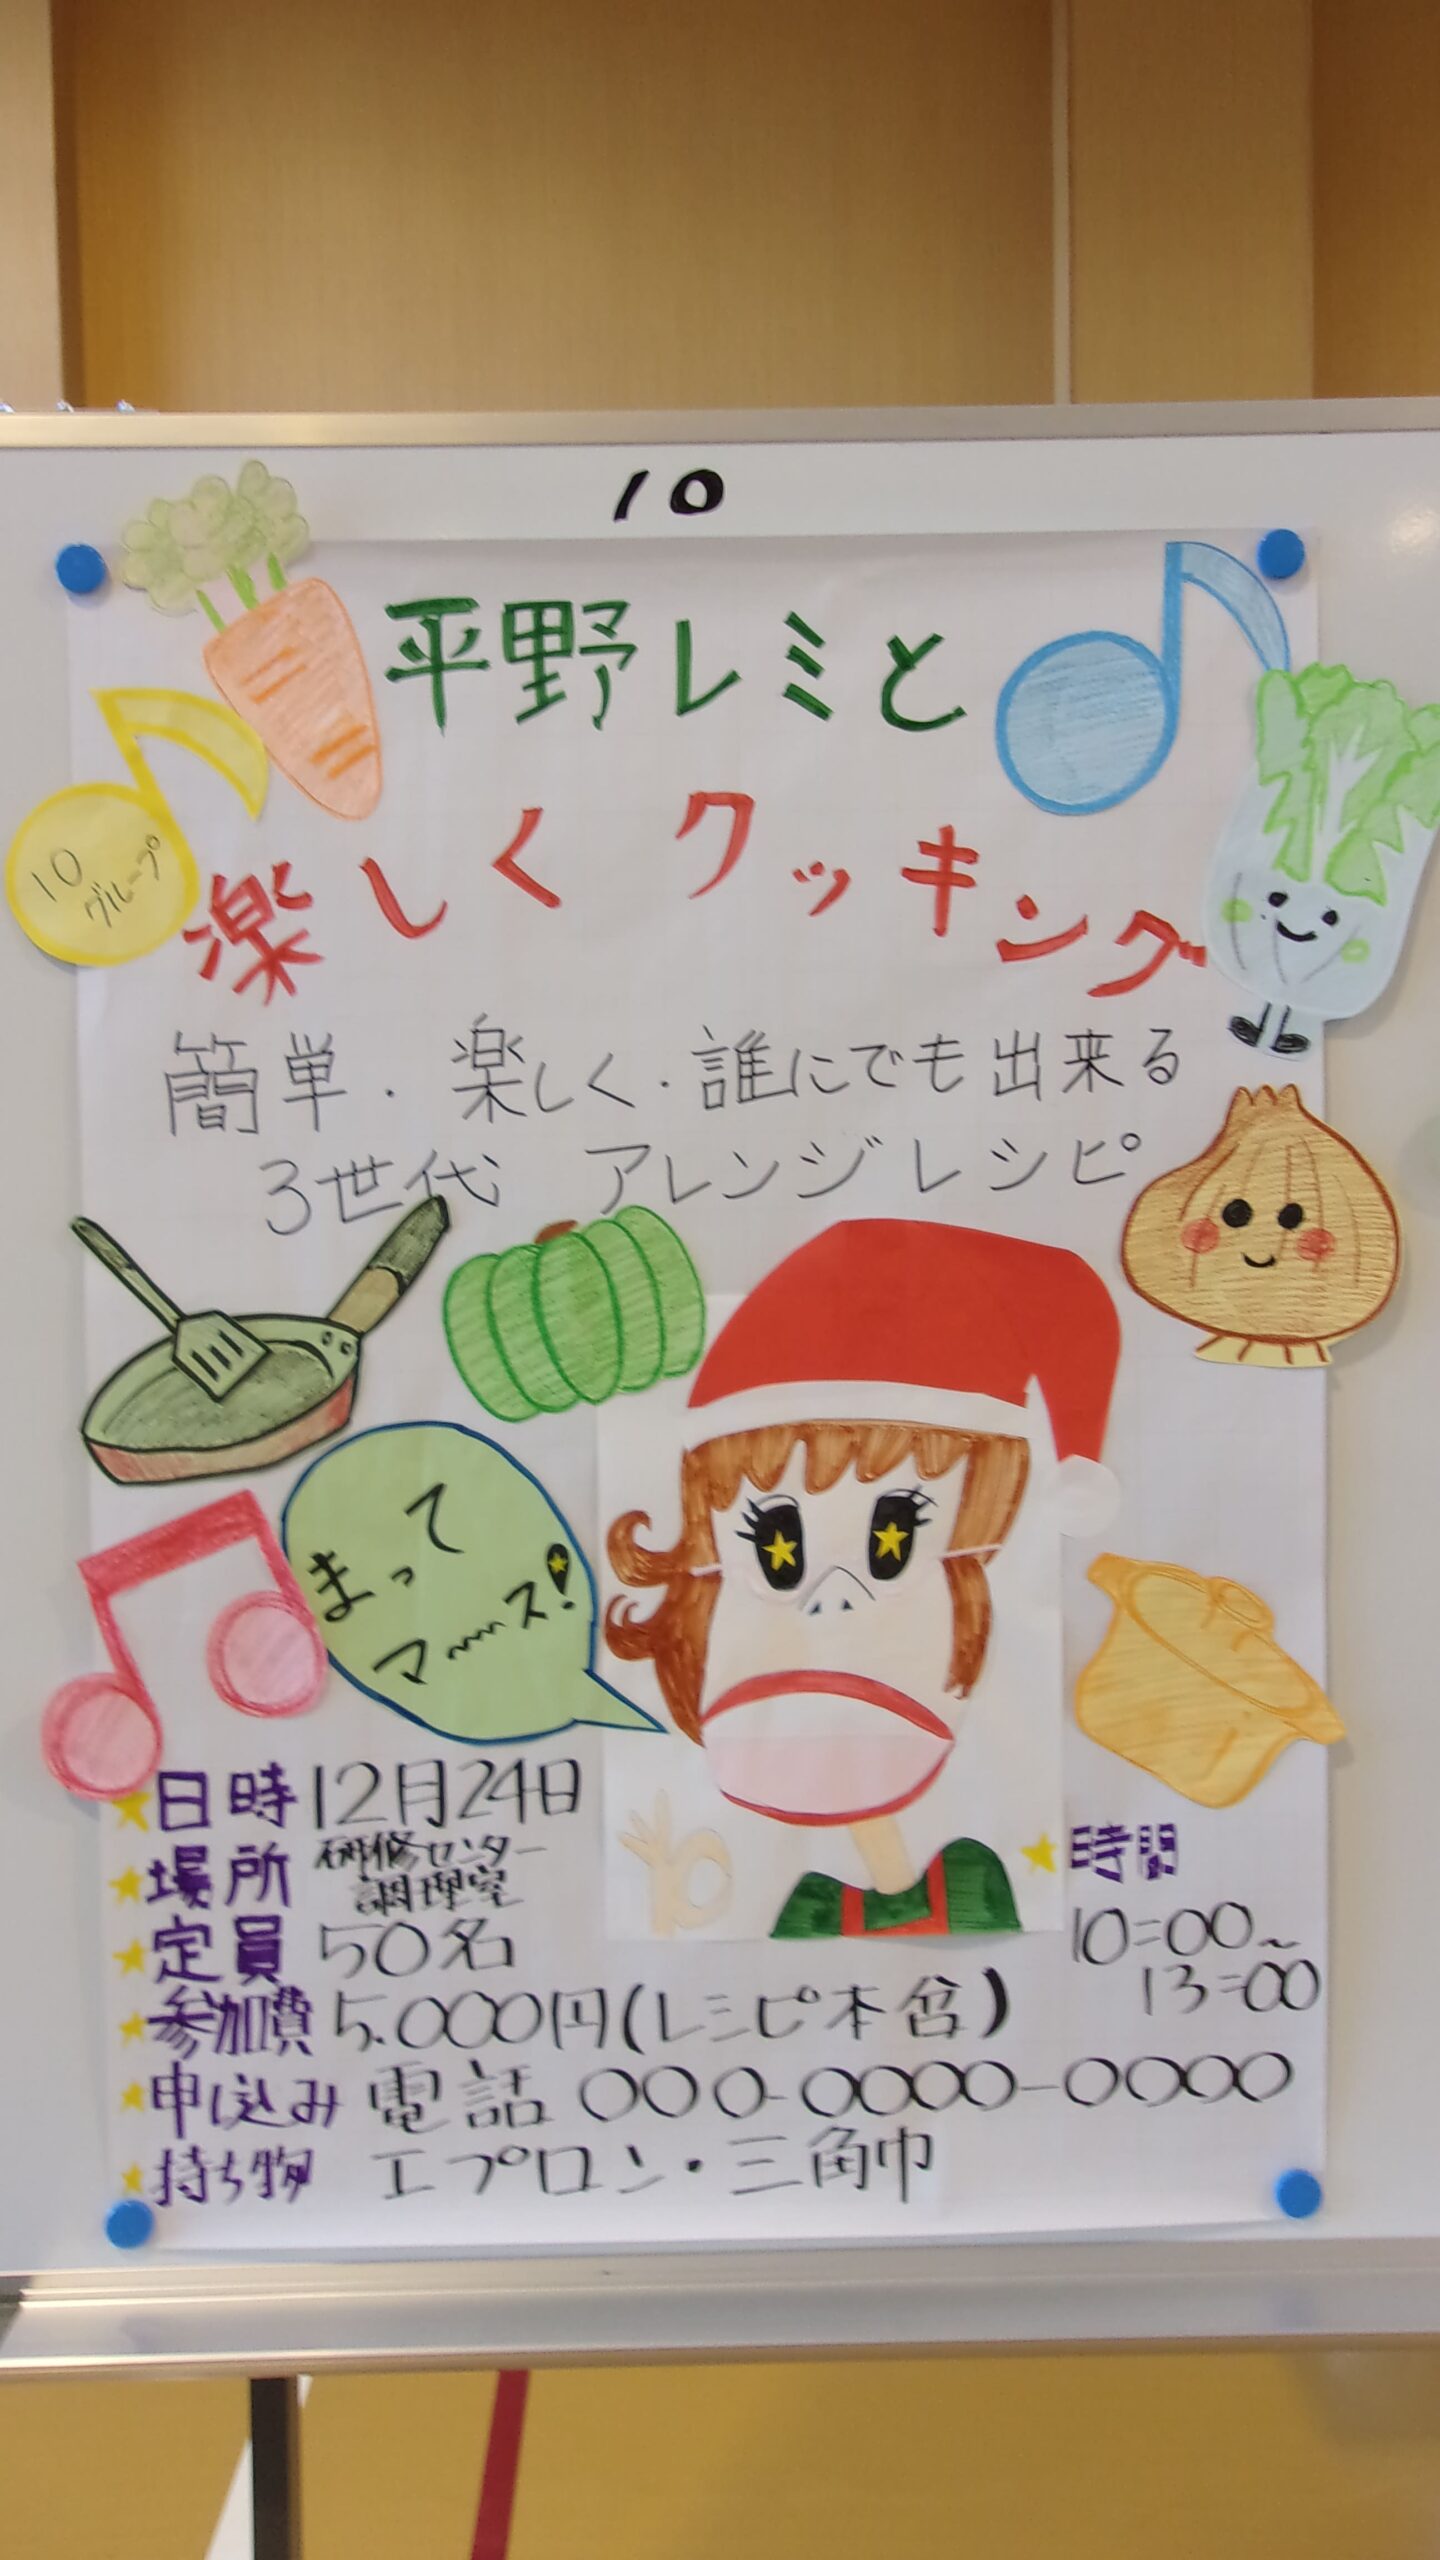 10
平野レミと
10
グループ
楽しくクッキング
簡単・楽しく・誰にでも出来る
3世代 アレンジレシピ
まって
マ〜〜ス!
日時 12月24日
場所 研修センター
調理室
定員 50名
時間
10=00〜
13=00
参加費 5.000円(レシピ本含)
申し込み 電話 〇〇〇-〇〇〇〇-〇〇〇〇
持ち物 エプロン・三角巾